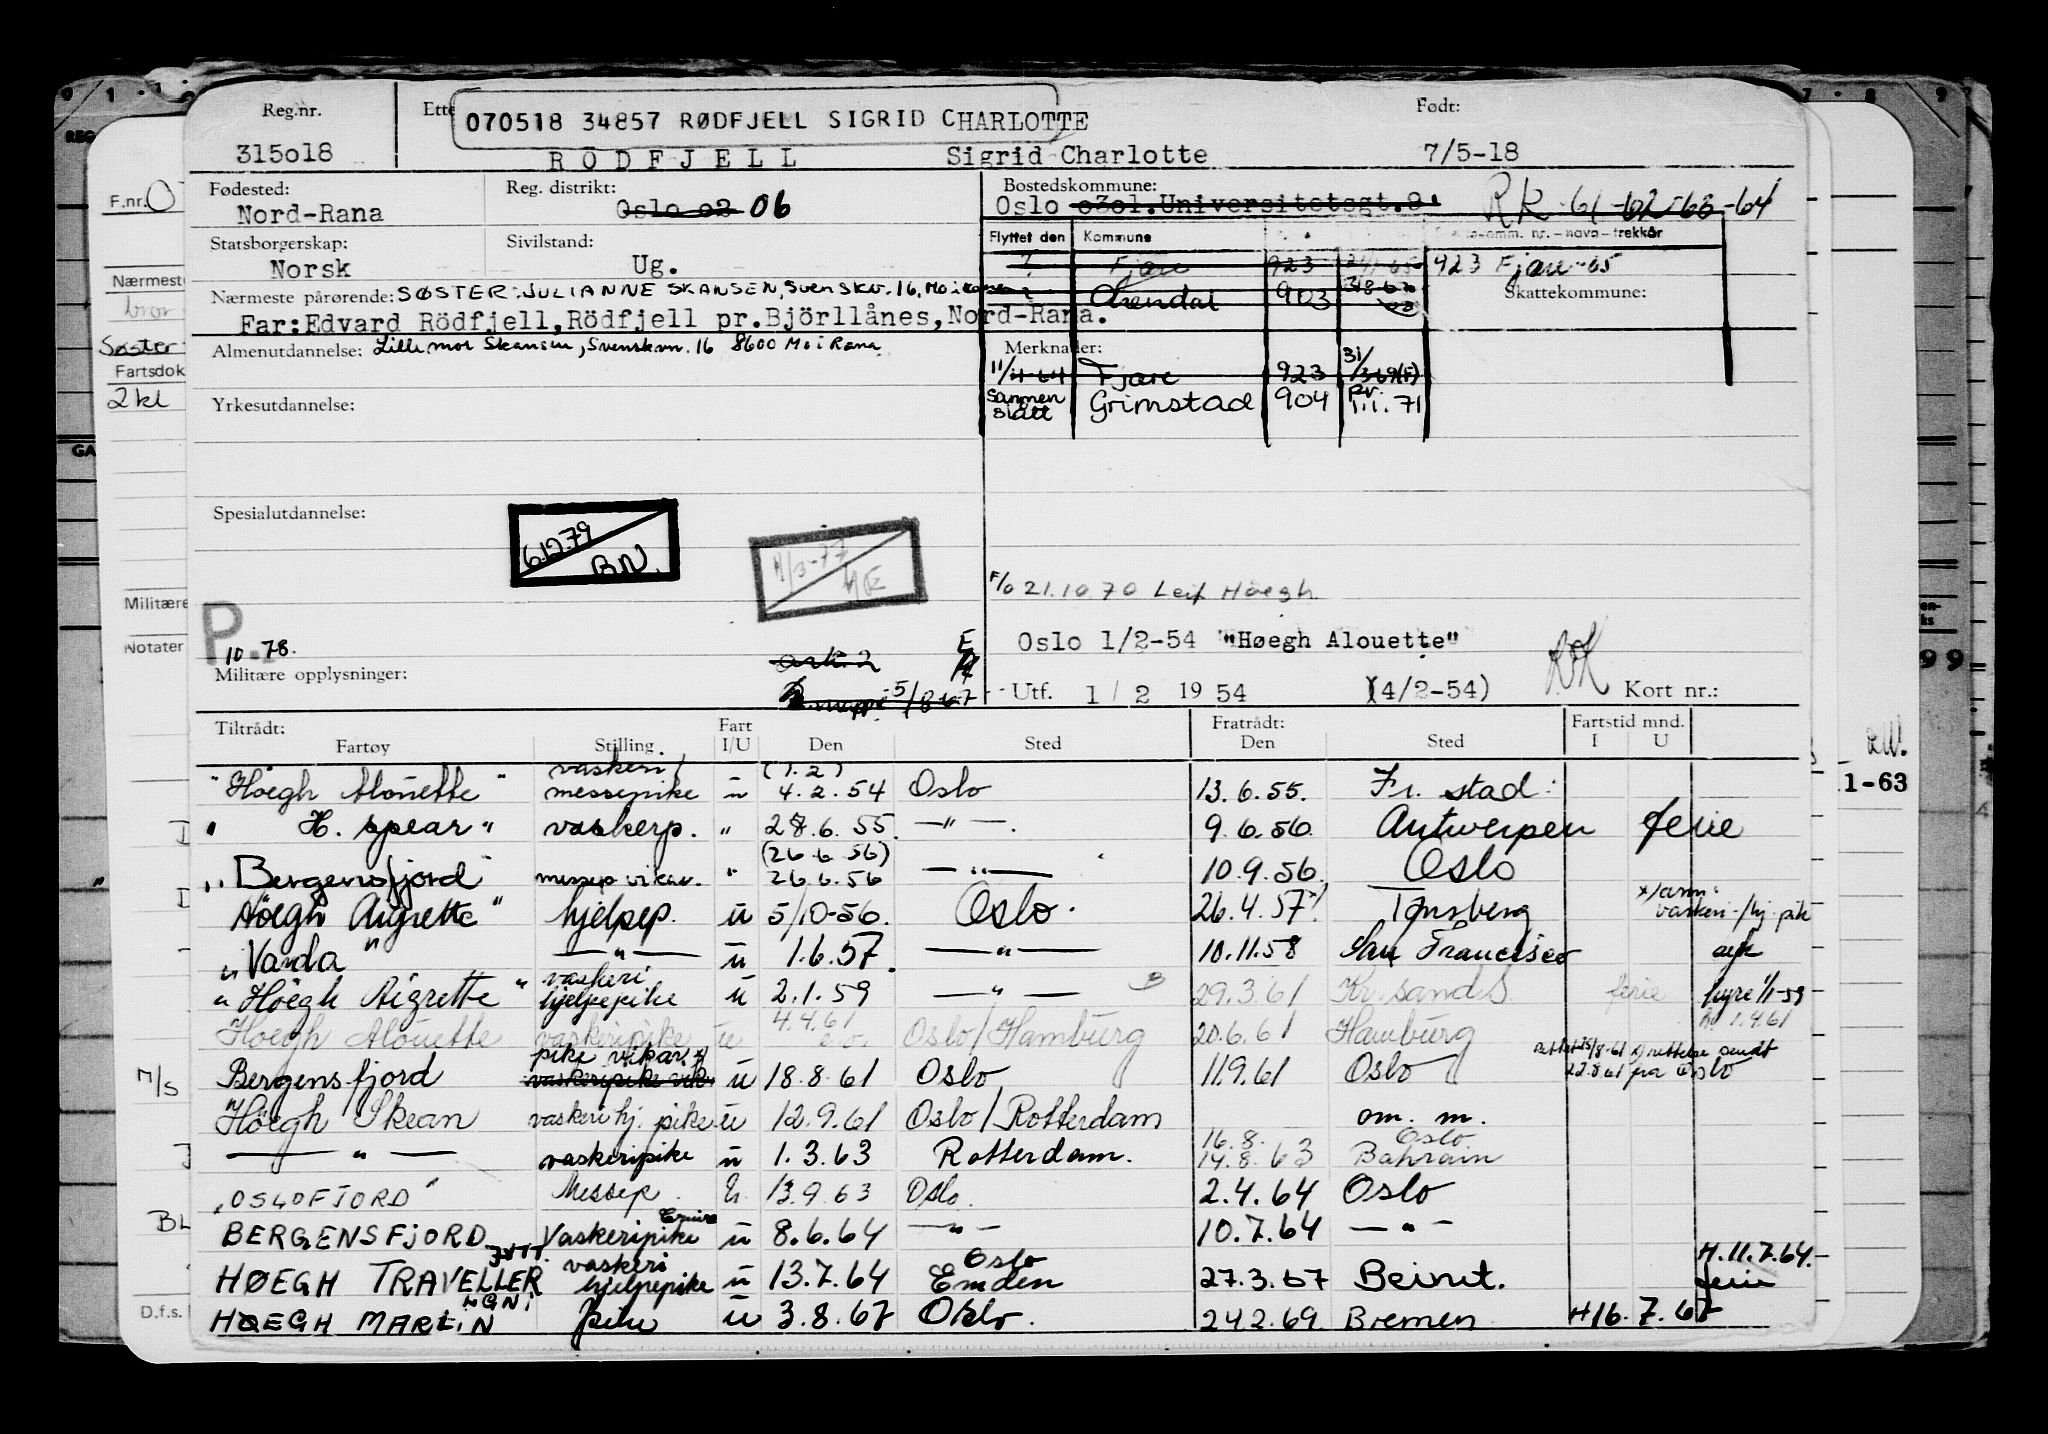 Reg.nr. Ette 070518 34857 RØDFJELL SIGRID CHARLOTTE Født:
315o18 RÖDFJELL Sigrid Charlotte 7/5-18
F.nr. O
Fødested: Reg. distrikt: Bostedskommune:
Nord-Rana Oslo o2 06 Oslo o3o1.Universitetsgt.9. RK-61-62-63-64
Statsborgerskap: Sivilstand: Flyttet den Kommune komm. nr. - navn - trekkår
Norsk Ug. ? Fjære 923 423 Fjære-65
Nærmeste pårørende: SØSTER: JULIANNE SKANSEN, Svenskv. 16, Mo i Rana Arendal 903 Skattekommune:
Far: Edvard Rödfjell, Rödfjell pr. Björllånes, Nord-Rana.
Almenutdannelse: Lillemor Skansen, Svenskvn. 16 8600 Mo i Rana Merknader:
11/11-64 Fjære 923 31/3 69(F)
Yrkesutdannelse: Sammen slått Grimstad 904 pr. 1.1.71
Spesialutdannelse:
6.12.79 BN.
11/3-77
F/O 21.10 70 Leif Höegh
P. 10.78. ark. 2 Oslo 1/2-54 "Høegh Alouette"
Militære opplysninger: 5/8-67 Utf. 1/2 1954 (4/2-54) Kort nr.:
Tiltrådt: Fart Fratrådt: Fartstid mnd.
Fartøy Stilling. I/U Den Sted Den Sted I U
"Höegh Alouette" vaskeri/messepike u (1.2) 4.2.54 Oslo 13.6.55. Fr. stad
" H. spear" vaskerp. " 28.6.55. —"— 9.6.56 Antwerpen ferie
"Bergensfjord" messep vikar. " (26.6.56) 26.6.56 —"— 10.9.56. Oslo
Höegh Aigrette" hjelpep. u 5/10-56. Oslo. 26.4.57 x/ Tønsberg x/anm. vaskeri-/hj. pik
"Varda" —"— u 1.6.57. —"— 10.11.58 San Francisco
"Höegh Aigrette" vaskeri hjelpepike u 2.1.59 —"— 29.3.61 Kr.sand S. ferie hyre 1/1-59
Höegh Alouette vaskeripike u 4.4.61 Oslo/Hamburg 20.6.61 Hamburg 1.4.61
M/S Bergensfjord pike vikar vaskeripike vik u 18.8.61 Oslo 11.9.61 Oslo x) rettelse sendt 22.8.61 fra Oslo
Höegh Skean vaskeri hj. pike u 12.9.61 Oslo/Rotterdam om. m.
—"— vaskeripike u 1.3.63 Rotterdam. 16.8. 14.8.63 Oslo Bahrain
"OSLOFJORD" Messep. U. 13.9.63 Oslo. 2.4.64 Oslo
BERGENSFJORD Vaskeripike u 8.6.64 —"— 10.7.64 —"—
HØEGH TRAVELLER vaskeri hjelpepike u 13.7.64 Oslo Emden 27.3.67 Beirut. H.11.7.64. ferie
HØEGH MARLIN LGNI pike u 3.8.67 Oslo. 24.2.69 Bremen H16.7.67
Nærmeste
Søster
Fartsdok
2kl
Militære
Notater
D.f.s.
1-63
99